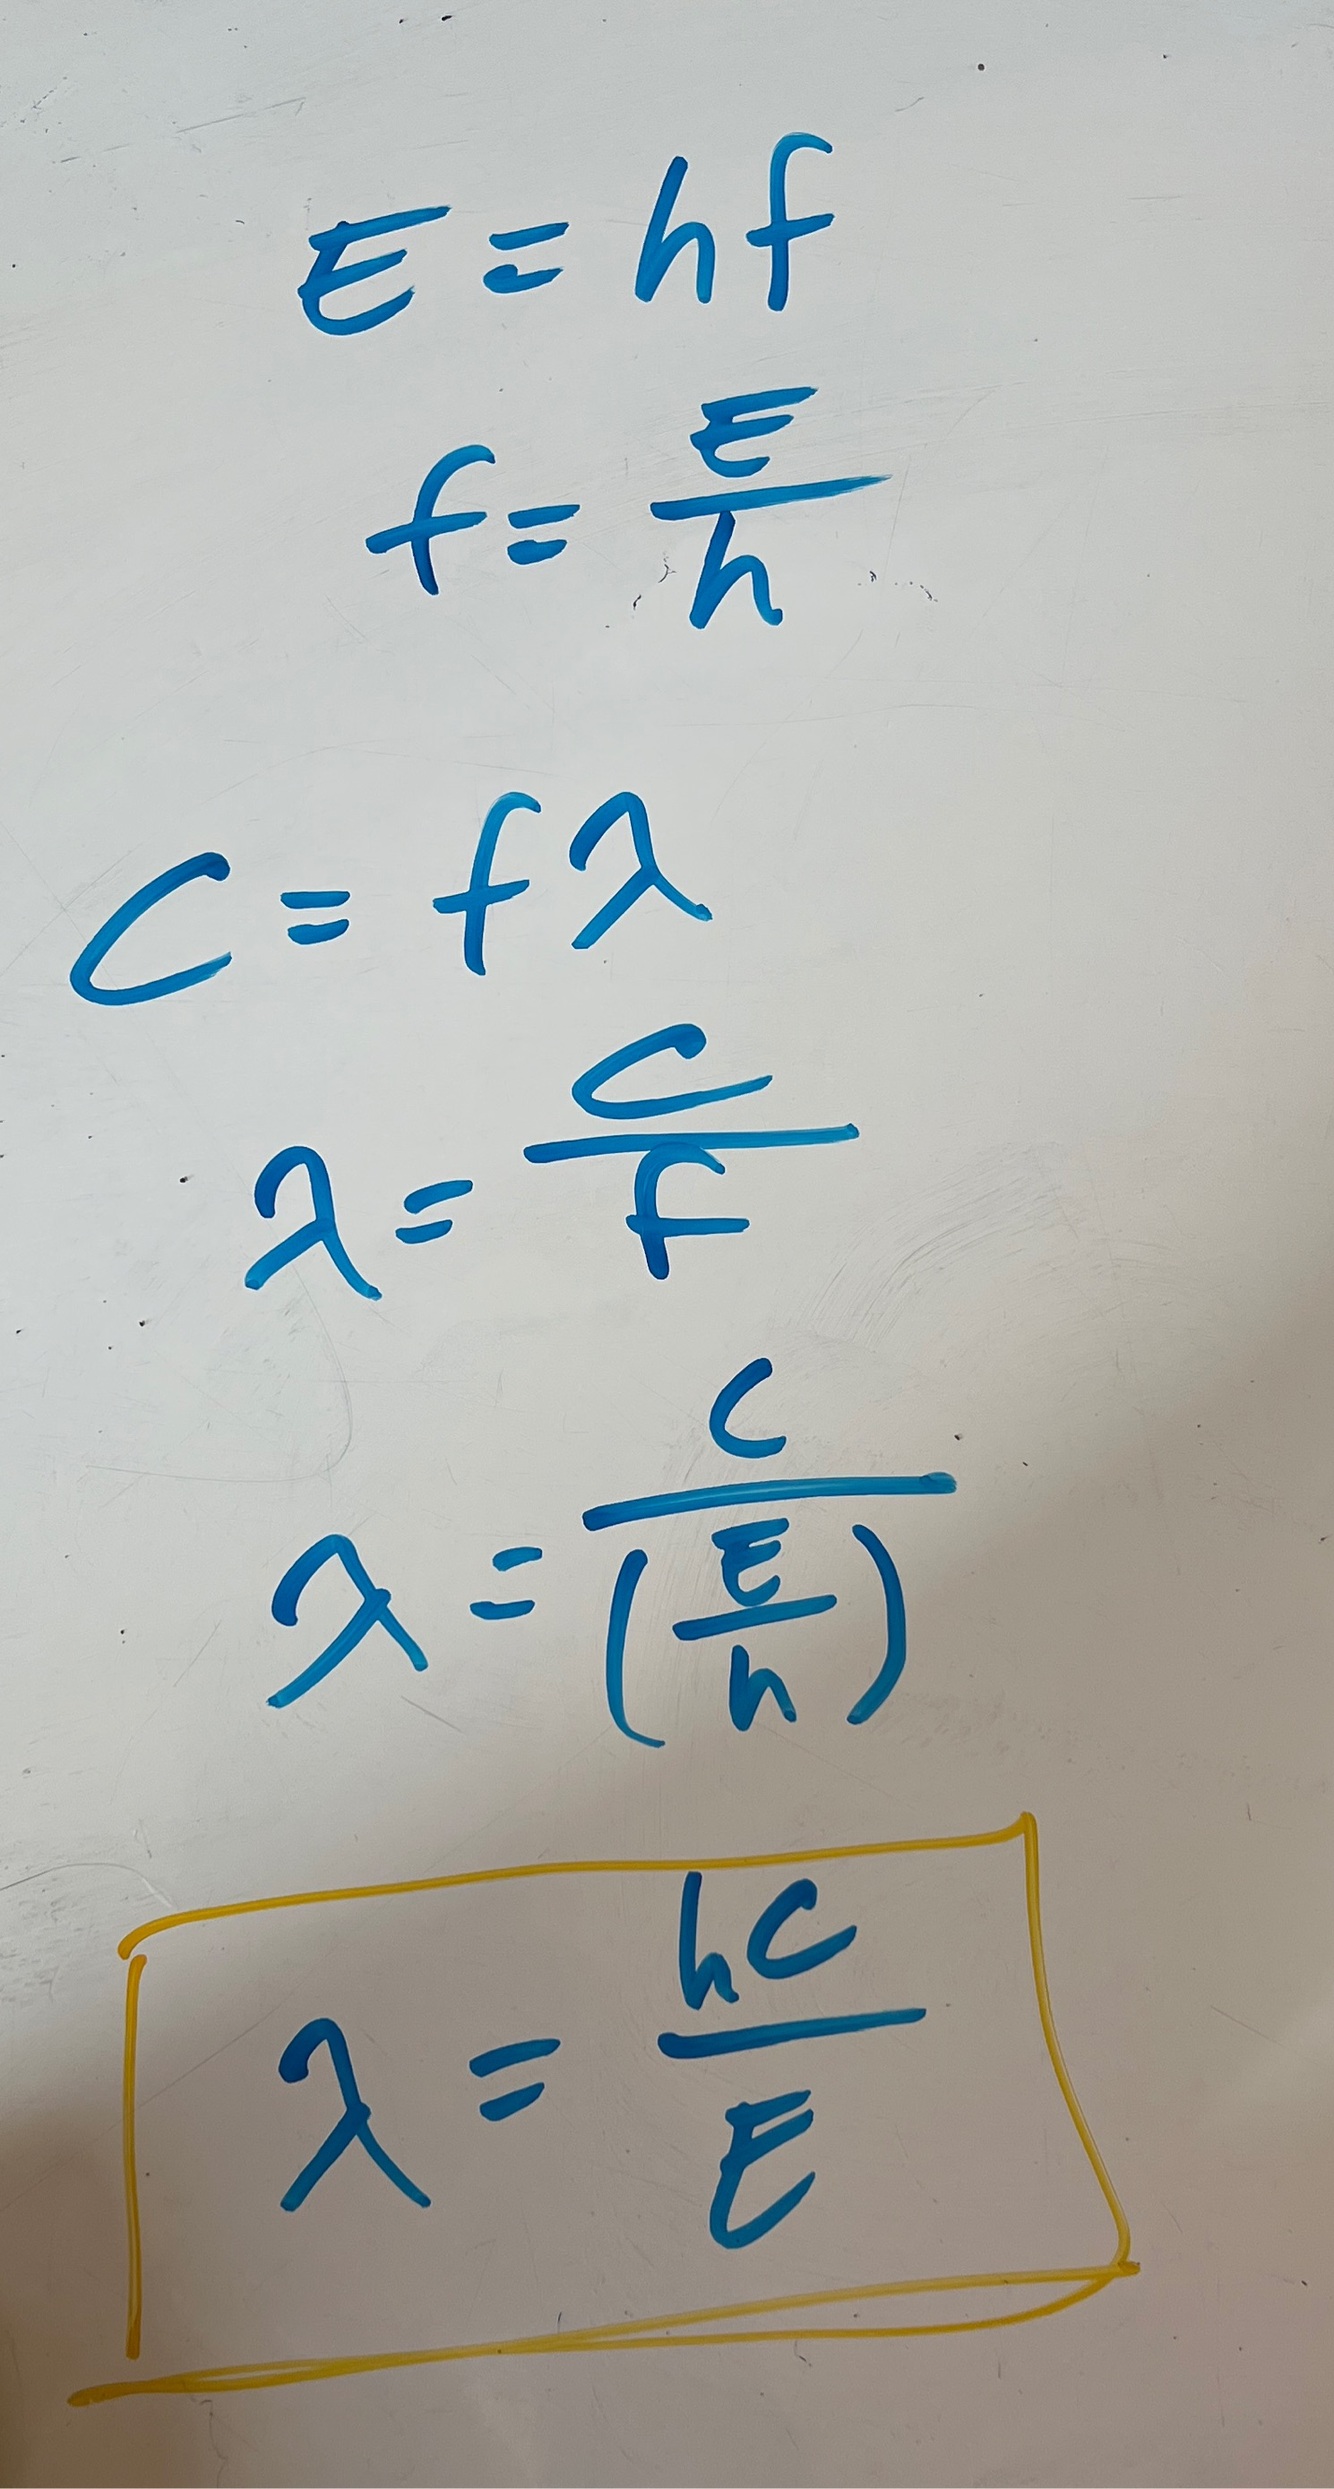 E = hf
f = E/h
C = fλ
λ = C/f
λ = C/(E/h)
λ = hC/E